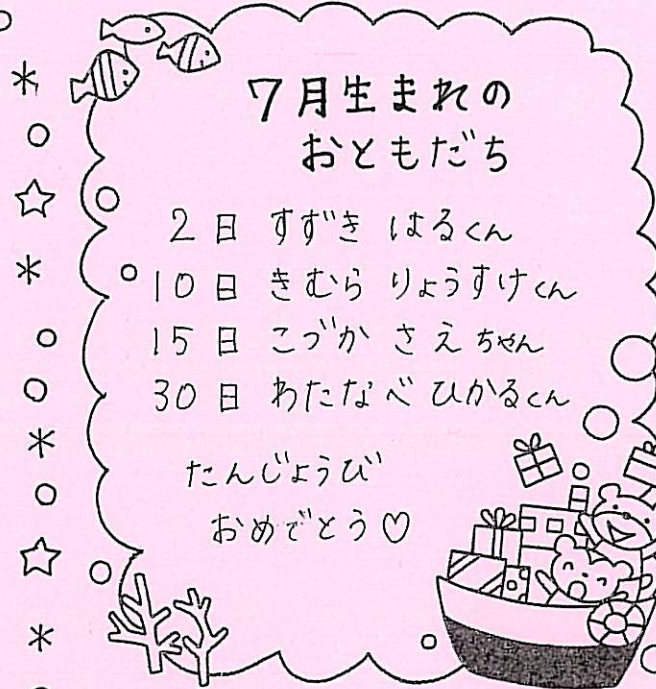 7月生まれの
おともだち
2日 すずき はるくん
10日 きむら りょうすけくん
15日 こづか さえちゃん
30日 わたなべ ひかるくん
たんじょうび
おめでとう♡